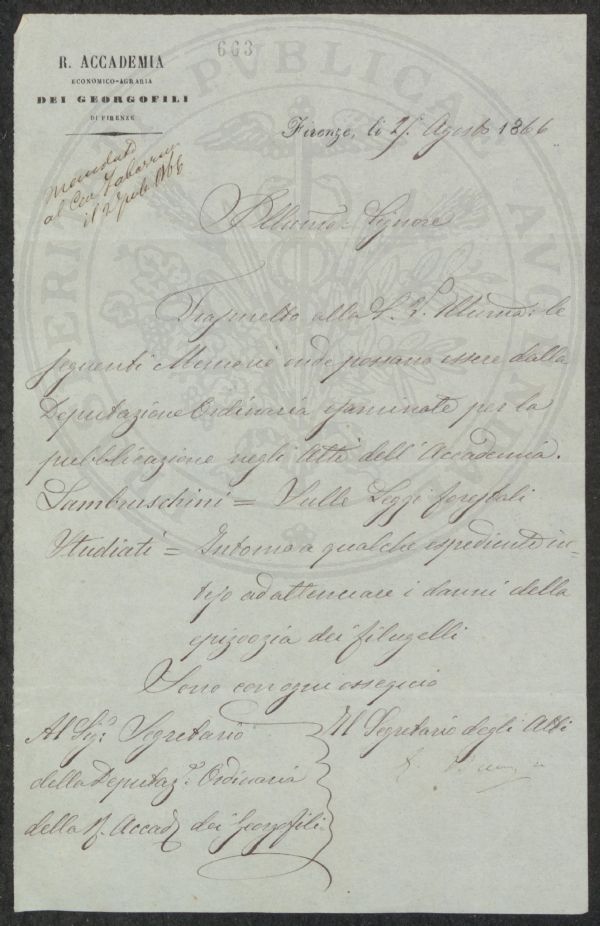 663
R. ACCADEMIA
ECONOMICO-AGRARIA
DEI GEORGOFILI
DI FIRENZE
Firenze, li 27 Agosto 1866
Mandato
al Cav. Tabarrini
il 2 1866
Illmo: Signore
Trasmetto alla S. V. Illma: le
seguenti Memorie onde possano essere dalla
Deputazione Ordinaria esaminate per la
pubblicazione negli Atti dell'Accademia.
Lambruschini = Sulle Leggi forestali
Studiati = Intorno a qualche espediente in=
teso ad attenuare i danni della
epizoozia dei filugelli
Sono con ogni ossequio
Al Sigr. Segretario
della Deputazne. Ordinaria
della R. Accad. dei Georgofili
Il Segretario degli Atti